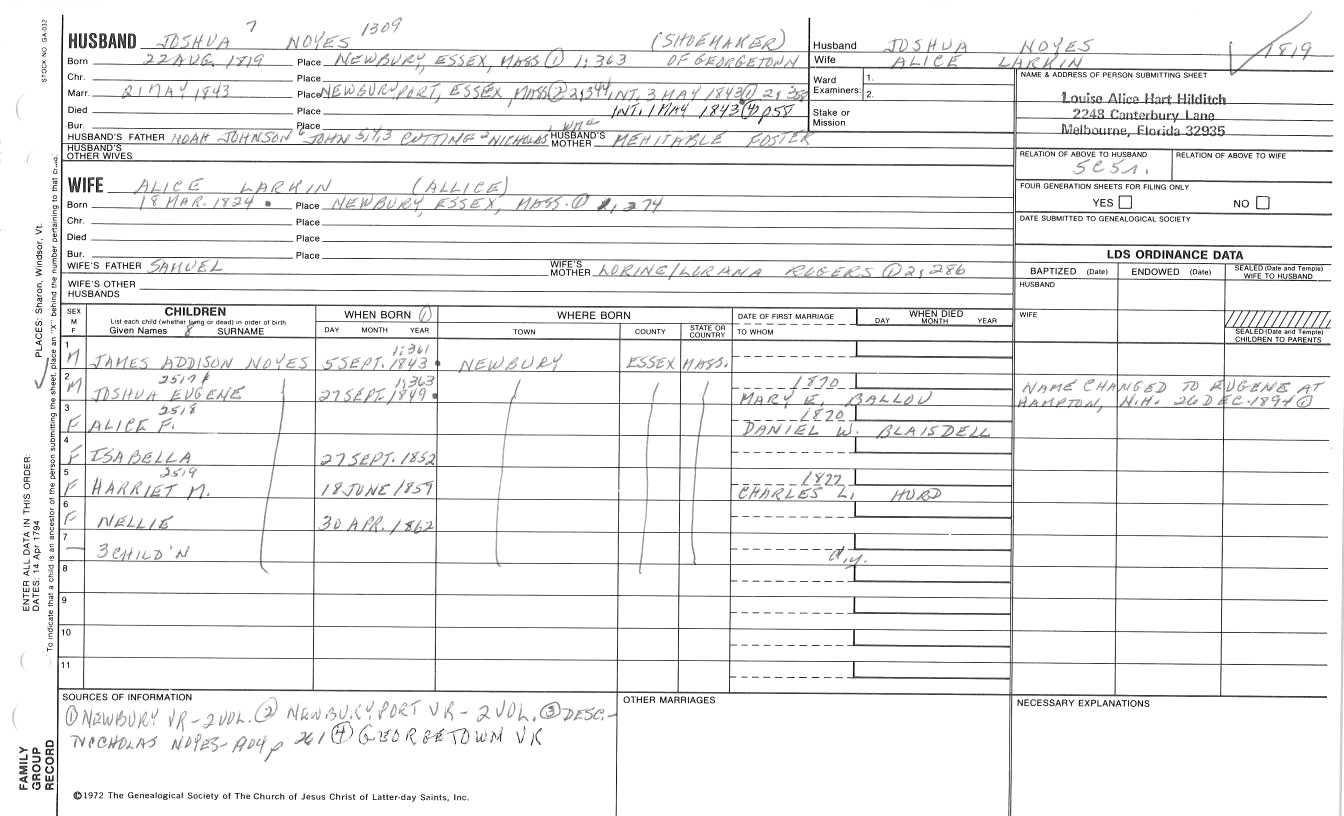 STOCK NO. GA-032
HUSBAND JOSHUA 7 NOYES 1309 (SHOEMAKER)
Born 22 AUG. 1819 Place NEWBURY, ESSEX, MASS ① 1; 363 OF GEORGETOWN
Chr. Place
Marr. 21 MAY 1843 Place NEWBURYPORT, ESSEX, MASS ② 2, 344, INT. 3 MAY 1843 ① 2, 358
Died Place INT. 1 MAY 1843 ④ p 58
Bur. Place
HUSBAND'S FATHER NOAH JOHNSON 6 JOHN 5,4,3 CUTTING 2 NICHOLAS 1 HUSBAND'S MOTHER MEHITABLE FOSTER
HUSBAND'S OTHER WIVES
WIFE ALICE LARKIN (ALLICE)
Born 18 MAR. 1824 Place NEWBURY, ESSEX, MASS. ① 1, 274
Chr. Place
Died Place
Bur. Place
WIFE'S FATHER SAMUEL WIFE'S MOTHER LORINE/LURANA ROGERS ① 2, 286
WIFE'S OTHER HUSBANDS
Husband JOSHUA NOYES 1819
Wife ALICE LARKIN
Ward Examiners: 1.
2.
Stake or Mission
NAME & ADDRESS OF PERSON SUBMITTING SHEET
Louise Alice Hart Hilditch
2248 Canterbury Lane
Melbourne, Florida 32935
RELATION OF ABOVE TO HUSBAND RELATION OF ABOVE TO WIFE
5C5r.
FOUR GENERATION SHEETS FOR FILING ONLY
YES NO
DATE SUBMITTED TO GENEALOGICAL SOCIETY
LDS ORDINANCE DATA
BAPTIZED (Date) ENDOWED (Date) SEALED (Date and Temple) WIFE TO HUSBAND
HUSBAND
WIFE
SEALED (Date and Temple) CHILDREN TO PARENTS
SEX M F
CHILDREN
List each child (whether living or dead) in order of birth
Given Names 8 SURNAME
WHEN BORN ①
DAY MONTH YEAR
WHERE BORN
TOWN COUNTY STATE OR COUNTRY
DATE OF FIRST MARRIAGE
TO WHOM
WHEN DIED
DAY MONTH YEAR
1 M JAMES ADDISON NOYES 5 SEPT. 1843 1; 361 NEWBURY ESSEX MASS.
2 M JOSHUA EUGENE 2517 27 SEPT. 1849 1; 363 1870 MARY E. BALLOU NAME CHANGED TO EUGENE AT HAMPTON, N.H. 26 DEC. 1894 ①
3 F ALICE F. 2518 1870 DANIEL W. BLAISDELL
4 F ISABELLA 27 SEPT. 1852
5 F HARRIET M. 2519 18 JUNE 1859 1877 CHARLES L. HURD
6 F NELLIE 30 APR. 1862
7 — 3 CHILD'N d.y.
8
9
10
11
SOURCES OF INFORMATION
① NEWBURY VR - 2 VOL. ② NEWBURYPORT VR - 2 VOL. ③ DESC.-
NICHOLAS NOYES - p 261 ④ GEORGETOWN VR
OTHER MARRIAGES
NECESSARY EXPLANATIONS
©1972 The Genealogical Society of The Church of Jesus Christ of Latter-day Saints, Inc.
FAMILY GROUP RECORD
ENTER ALL DATA IN THIS ORDER:
DATES: 14 Apr 1794
PLACES: Sharon, Windsor, Vt.
To indicate that a child is an ancestor of the person submitting the sheet, place an "X" behind the number pertaining to that child.